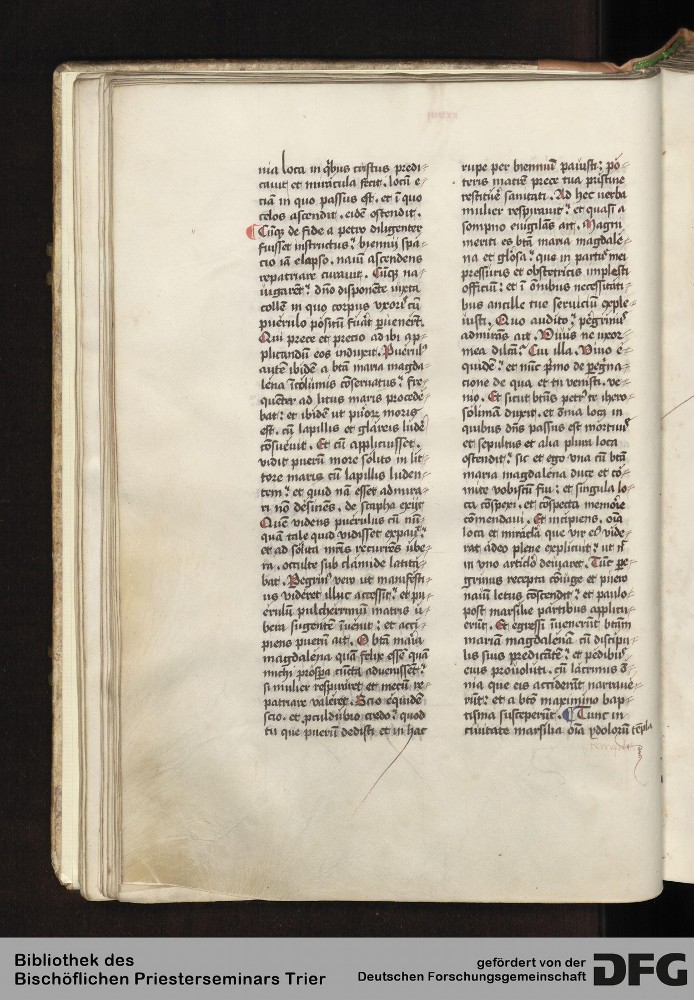 nia loca in qͥbus cristus predi-
cauit et miracula fecit. locū e-
ciā in quo passus est. et ī quo
celos ascendit. eidē ostendit.
Cūqꝫ de fide a petro diligenter
fuisset instructus: biennij spa-
cio iā elapso. nauī ascendens
repatriare curauit. Cūqꝫ na-
uigarēt: dn̄o disponēte iuxta
collē in quo corpus vxorꝭ cū
puerulo positū fuāt puenerūt.
Qui prece et precio ad ibi ap-
plicandū eos induxit. Puerulꝰ
autē ibidē a btā maria magda-
lena īcolumis cōseruatus: fre-
quēter ad litus maris procede-
bat: et ibidē ut pūorꝫ moris
est. cū lapillis et glareis ludē
cōsueuit. Et cū applicuisset.
vidit puerū more solito in lit-
tore maris cū lapillis luden-
tem: et quid nā esset admira-
ri nō desinēs. de scapha exijt
Quē videns puerulus cū nū-
quā tale quid vidisset expauit:
et ad solita mr̄is recurrēs ube-
ra. occulte sub clamide latita-
bat. Pegrinꝰ vero ut manifesti-
us videret illuc accessit: et pu-
erulū pulcherrimū matris u-
bera sugentē īuenit: et acci-
piens puerū ait. O btā maīa
magdalena quā felix essē quā
michi prosp̄a cūcta aduenissēt:
si mulier respiraret et mecū re-
patriare valeret. Scio equidē
scio. et p̱culdubio credo: quod
tu que puerū dedisti et in hac
rupe per bienniū pauisti: po-
teris matrē prece tua pristine
restitue sanitati. Ad hec uerba
mulier respirauit: et quasi a
sompno euigilās ait. Magni
meriti es btā maria magdale-
na et glōsa: que in partu mei
pressuris et obstetricis implesti
officiū: et ī ōnibus necessitati-
bus ancille tue seruiciū exple-
uisti. Quo audito: pegrinus
admirās ait. Viuis ne uxor
mea dilctā: Cui illa. Viuo e-
quidē: et nūc pͥmo de pegͥna-
cione de qua et tu venisti. ve-
nio. Et sicut btūs petrꝰ te ihero-
solimā duxit. et ōnia loca in
quibus dn̄s passus est mortuus
et sepultus et alia plura loca
ostendit: sic et ego vna cū btā
maria magdalena duce et co-
mite vobiscū fui: et singula lo-
ca cōspexi. et cōspecta memorie
cōmendaui. Et incipiens. oīa
loca et miracĺa que vir eiꝰ vide-
rat adeo plene explicuit: ut nͨ
in vno articlō deuiaret. Tūc pe-
grinus recepta cōiuge et puero
nauī letus cōscendit: et paulo-
post marsilie partibus applicu-
erūt. Et egressi īuenerūt btām
mariā magdalenā cū discipu-
lis suis predicātē: et pedibꝰ
eius prouoluti. cū lacrimis o-
nia que eis acciderāt narraue-
rūt: et a btō maximino bap-
tisma susceperūt. Tunc in
ciuitate marsilia oīa ydolorū tēpla
Bibliothek des
Bischöflichen Priesterseminars Trier
gefördert von der
Deutschen Forschungsgemeinschaft
DFG